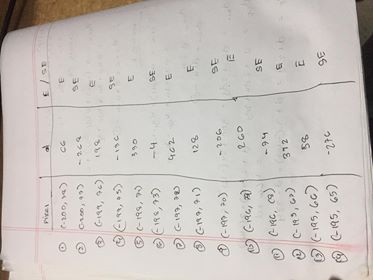 Pixel d E / SE
① (-200, 78) 66 E
② (-200, 77) -268 SE
③ (-199, 76) 198 E
④ (-199, 75) -136 SE
⑤ (-198, 74) 330 E
⑥ (-198, 73) -4 SE
⑦ (-197, 72) 462 E
⑧ (-197, 71) 128 E
⑨ (-197, 70) -206 SE
⑩ (-196, 69) 260 E
⑪ (-196, 68) -74 SE
⑫ (-195, 67) 392 E
⑬ (-195, 66) 58 E
⑭ (-195, 65) -276 SE